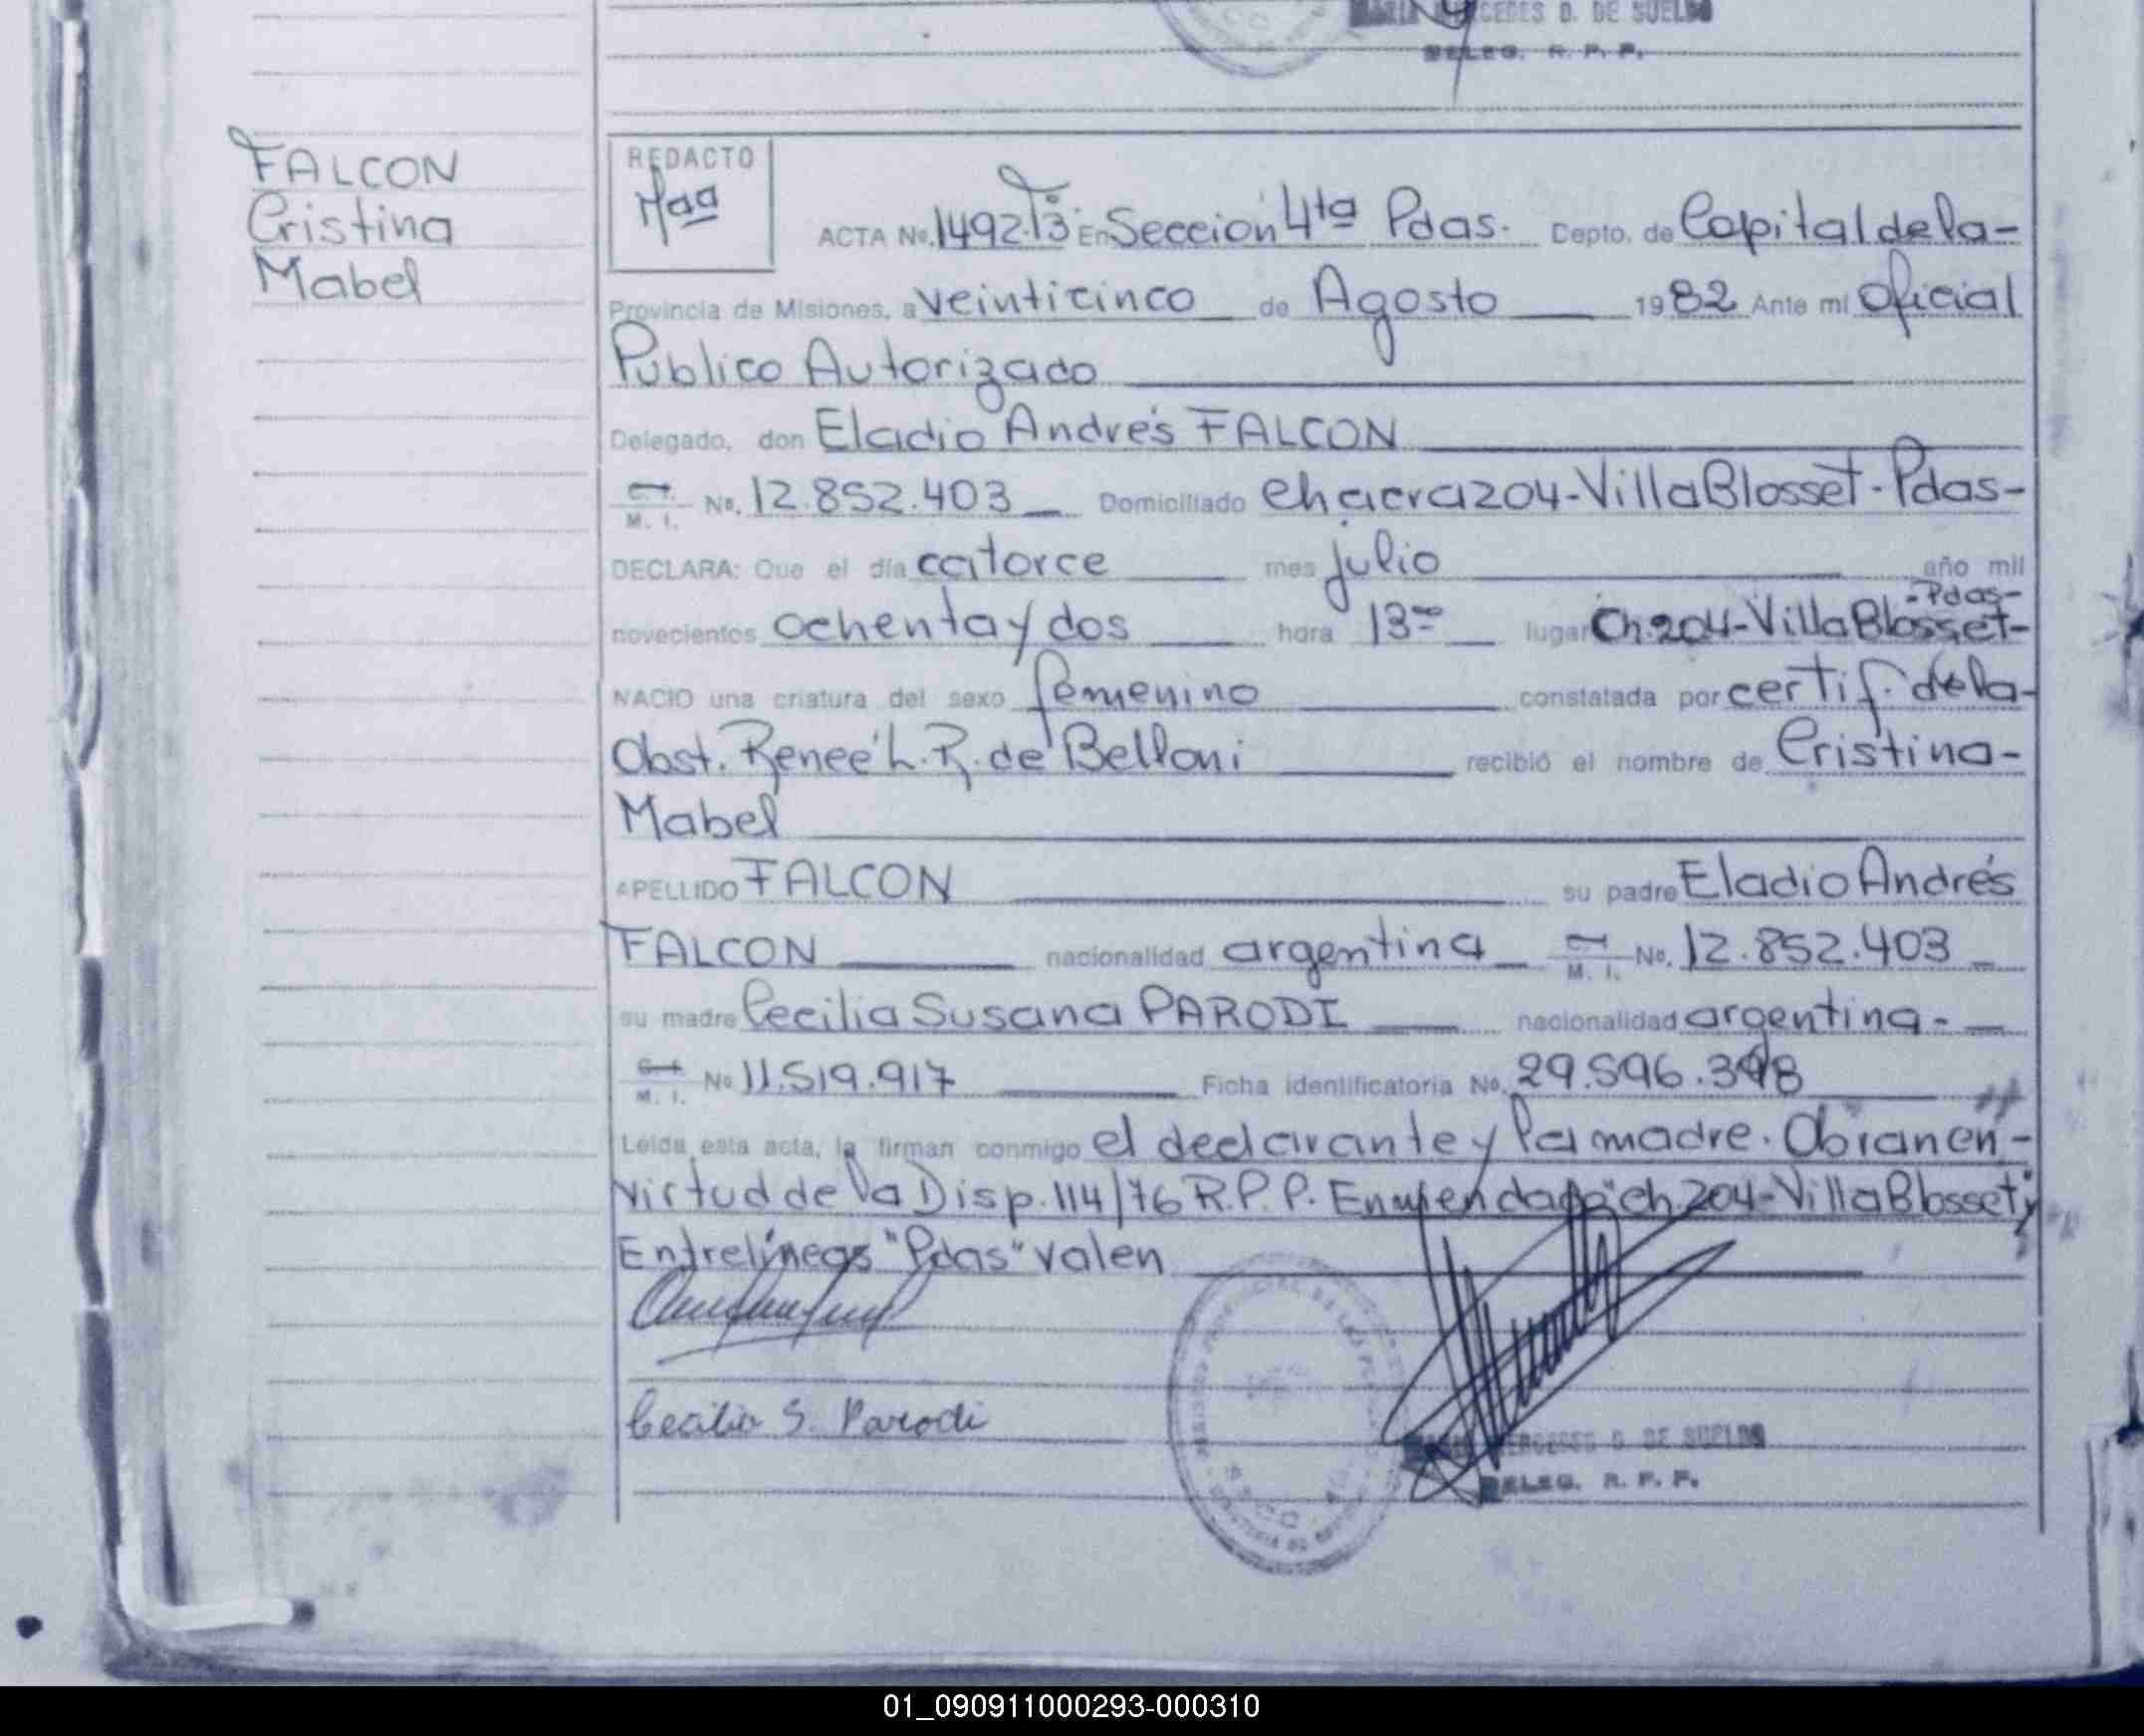 CEDES D. DE SUELDO
DELEG. R. P. P.
FALCON
Cristina
Mabel
REDACTO
ACTA No. 1492 Tº 13 En Seccion 4ta Pdas. Depto. de Capital de la-
Provincia de Misiones, a veinticinco de Agosto 1982 Ante mi Oficial
Público Autorizado
Delegado, don Eladio Andrés FALCON
C. I. M. I. No. 12.852.403 Domiciliado Chacra 204-Villa Blosset-Pdas-
DECLARA: Que el día catorce mes julio año mil
-Pdas-
novecientos ochenta y dos hora 13 lugar Ch.204-Villa Blosset-
NACIO una criatura del sexo femenino constatada por certif. de la-
Obst. Reneé L.R. de Belloni recibió el nombre de Cristina-
Mabel
APELLIDO FALCON su padre Eladio Andrés
FALCON nacionalidad argentina C. I. M. I. No. 12.852.403
su madre Cecilia Susana PARODI nacionalidad argentina-
C. I. M. I. No 11.519.917 Ficha identificatoria No. 29.596.398
Leida esta acta, la firman conmigo el declarante y la madre. Obran en-
virtud de la Disp. 114/76 R.P.P. Enmendado "ch.204-Villa Blosset",
Entrelíneas "Pdas" valen
Cecilia S. Parodi
MERCEDES D. DE SUELDO
DELEG. R. P. P.
01_090911000293-000310